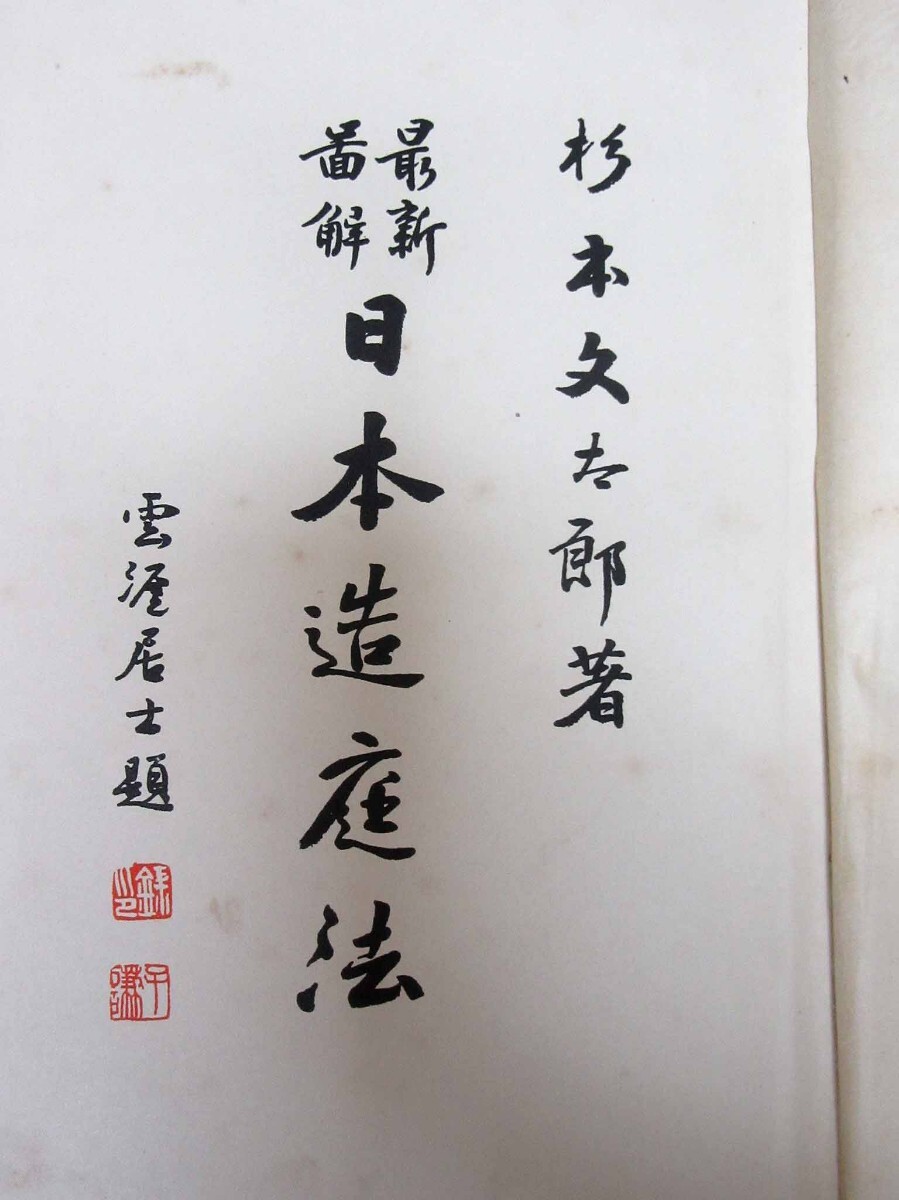 杉本文太郎著
最新
啚解
日本造庭法
雲涯居士題